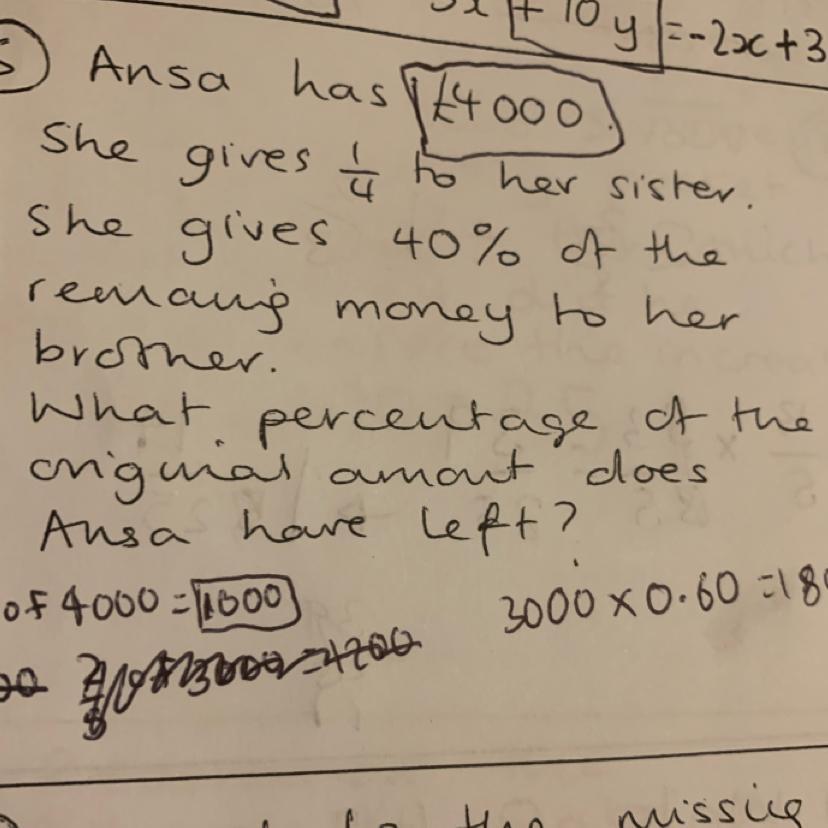 + 10y = -2x + 3
Ansa has £4000.
She gives 1/4 to her sister.
She gives 40% of the
remaing money to her
brother.
What percentage of the
original amount does
Ansa have left?
of 4000 = 1000
3000 × 0.60 = 18
the missing